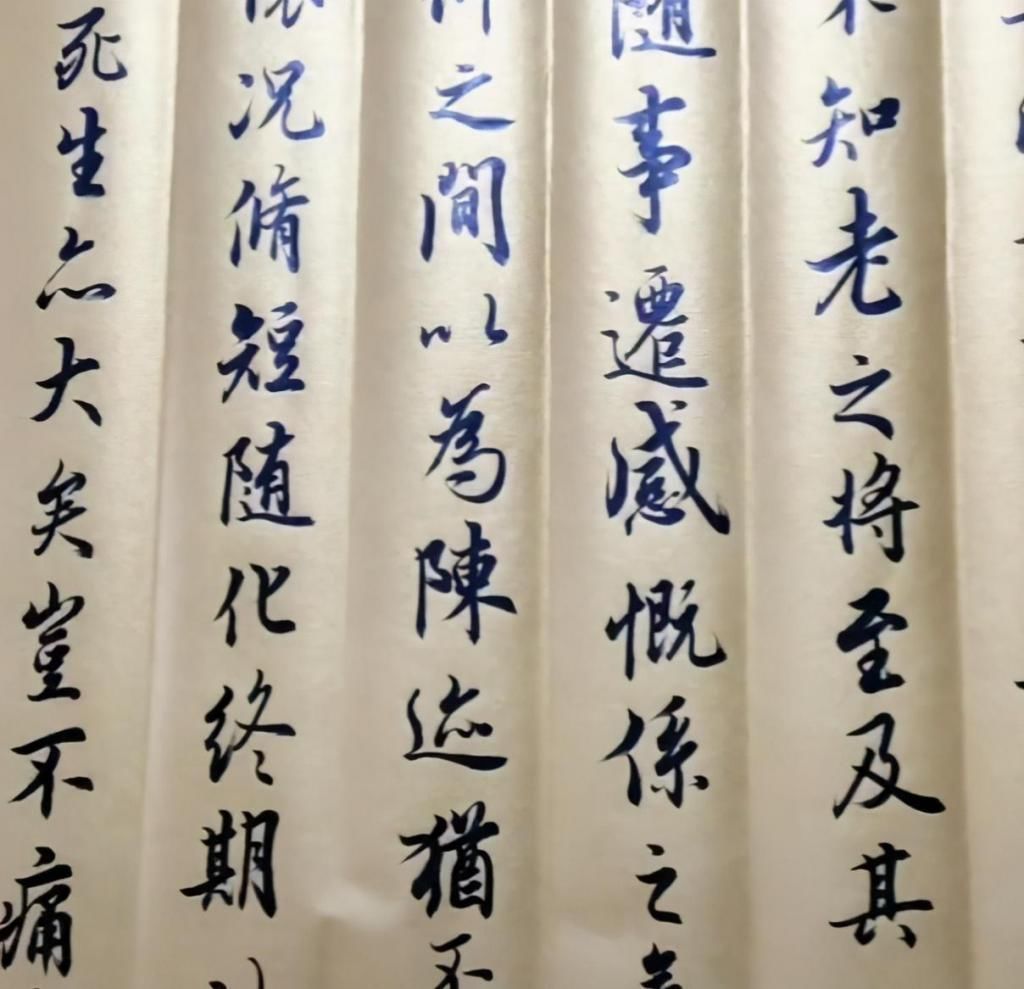 知老之將至及其
随事遷感慨係之
之間以為陳迹猶不
况脩短随化終期
死生亦大矣豈不痛